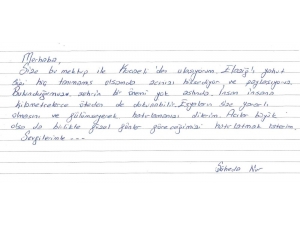 Merhaba,
Size bu mektup ile Kocaeli'den ulaşıyorum. Elazığ'ı yahut
sizi hiç tanımamış olsamda acınızı hissediyor ve paylaşıyorum.
Bulunduğumuz şehrin bir önemi yok aslında. İnsan insana
kilometrelerce öteden de dokunabilir. Eşyaların size yararlı
olmasını ve gülümseyerek hatırlamanızı dilerim. Acılar büyük
olsa da birlikte güzel günler göreceğimizi hatırlatmak isterim.
Sevgilerimle ...